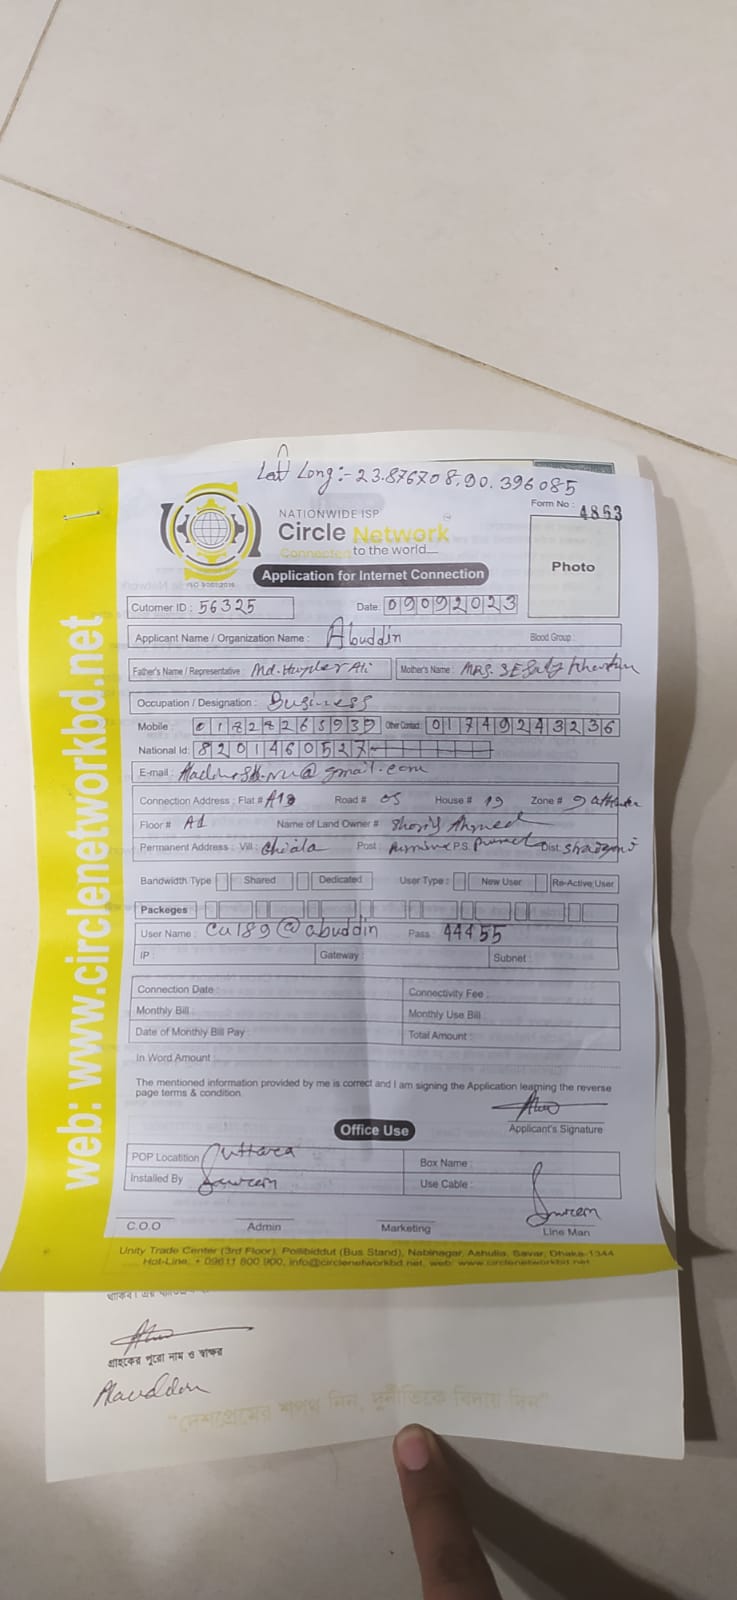 Lat Long:- 23.876708,90.396085
Form No : 4863
NATIONWIDE ISP
Circle Network
Connected to the world
ISO 9001:2015
Photo
Application for Internet Connection
Cutomer ID : 56325 Date: 09092023
Applicant Name / Organization Name : Abuddin Blood Group :
Father's Name / Representative : Md. Ali Mother's Name : MRS.
Occupation / Designation : Business
Mobile : Other Contact: 01749243236
National Id: 8201460527
E-mail : @gmail.com
Connection Address : Flat # Road # 05 House # 19 Zone # 9
Floor # A1 Name of Land Owner # Ahmed
Permanent Address : Vill : Post : P.S. Dist:
Bandwidth Type Shared Dedicated User Type : New User Re-Active User
Packeges
User Name : cu189@abuddin Pass : 44455
IP Gateway Subnet :
Connection Date : Connectivity Fee :
Monthly Bill : Monthly Use Bill :
Date of Monthly Bill Pay Total Amount :
In Word Amount :
The mentioned information provided by me is correct and I am signing the Application learning the reverse
page terms & condition.
Applicant's Signature
Office Use
POP Locatition : Uttara Box Name :
Installed By Use Cable :
C.O.O Admin Marketing Line Man
Unity Trade Center (3rd Floor), Pollibiddut (Bus Stand), Nabinagar, Ashulia, Savar, Dhaka-1344
Hot-Line: + 09611 800 900, info@circlenetworkbd.net, web: www.circlenetworkbd.net
web: www.circlenetworkbd.net
গ্রাহকের পুরো নাম ও স্বাক্ষর
"দেশপ্রেমের শপথ নিন, দুর্নীতিকে বিদায় দিন"